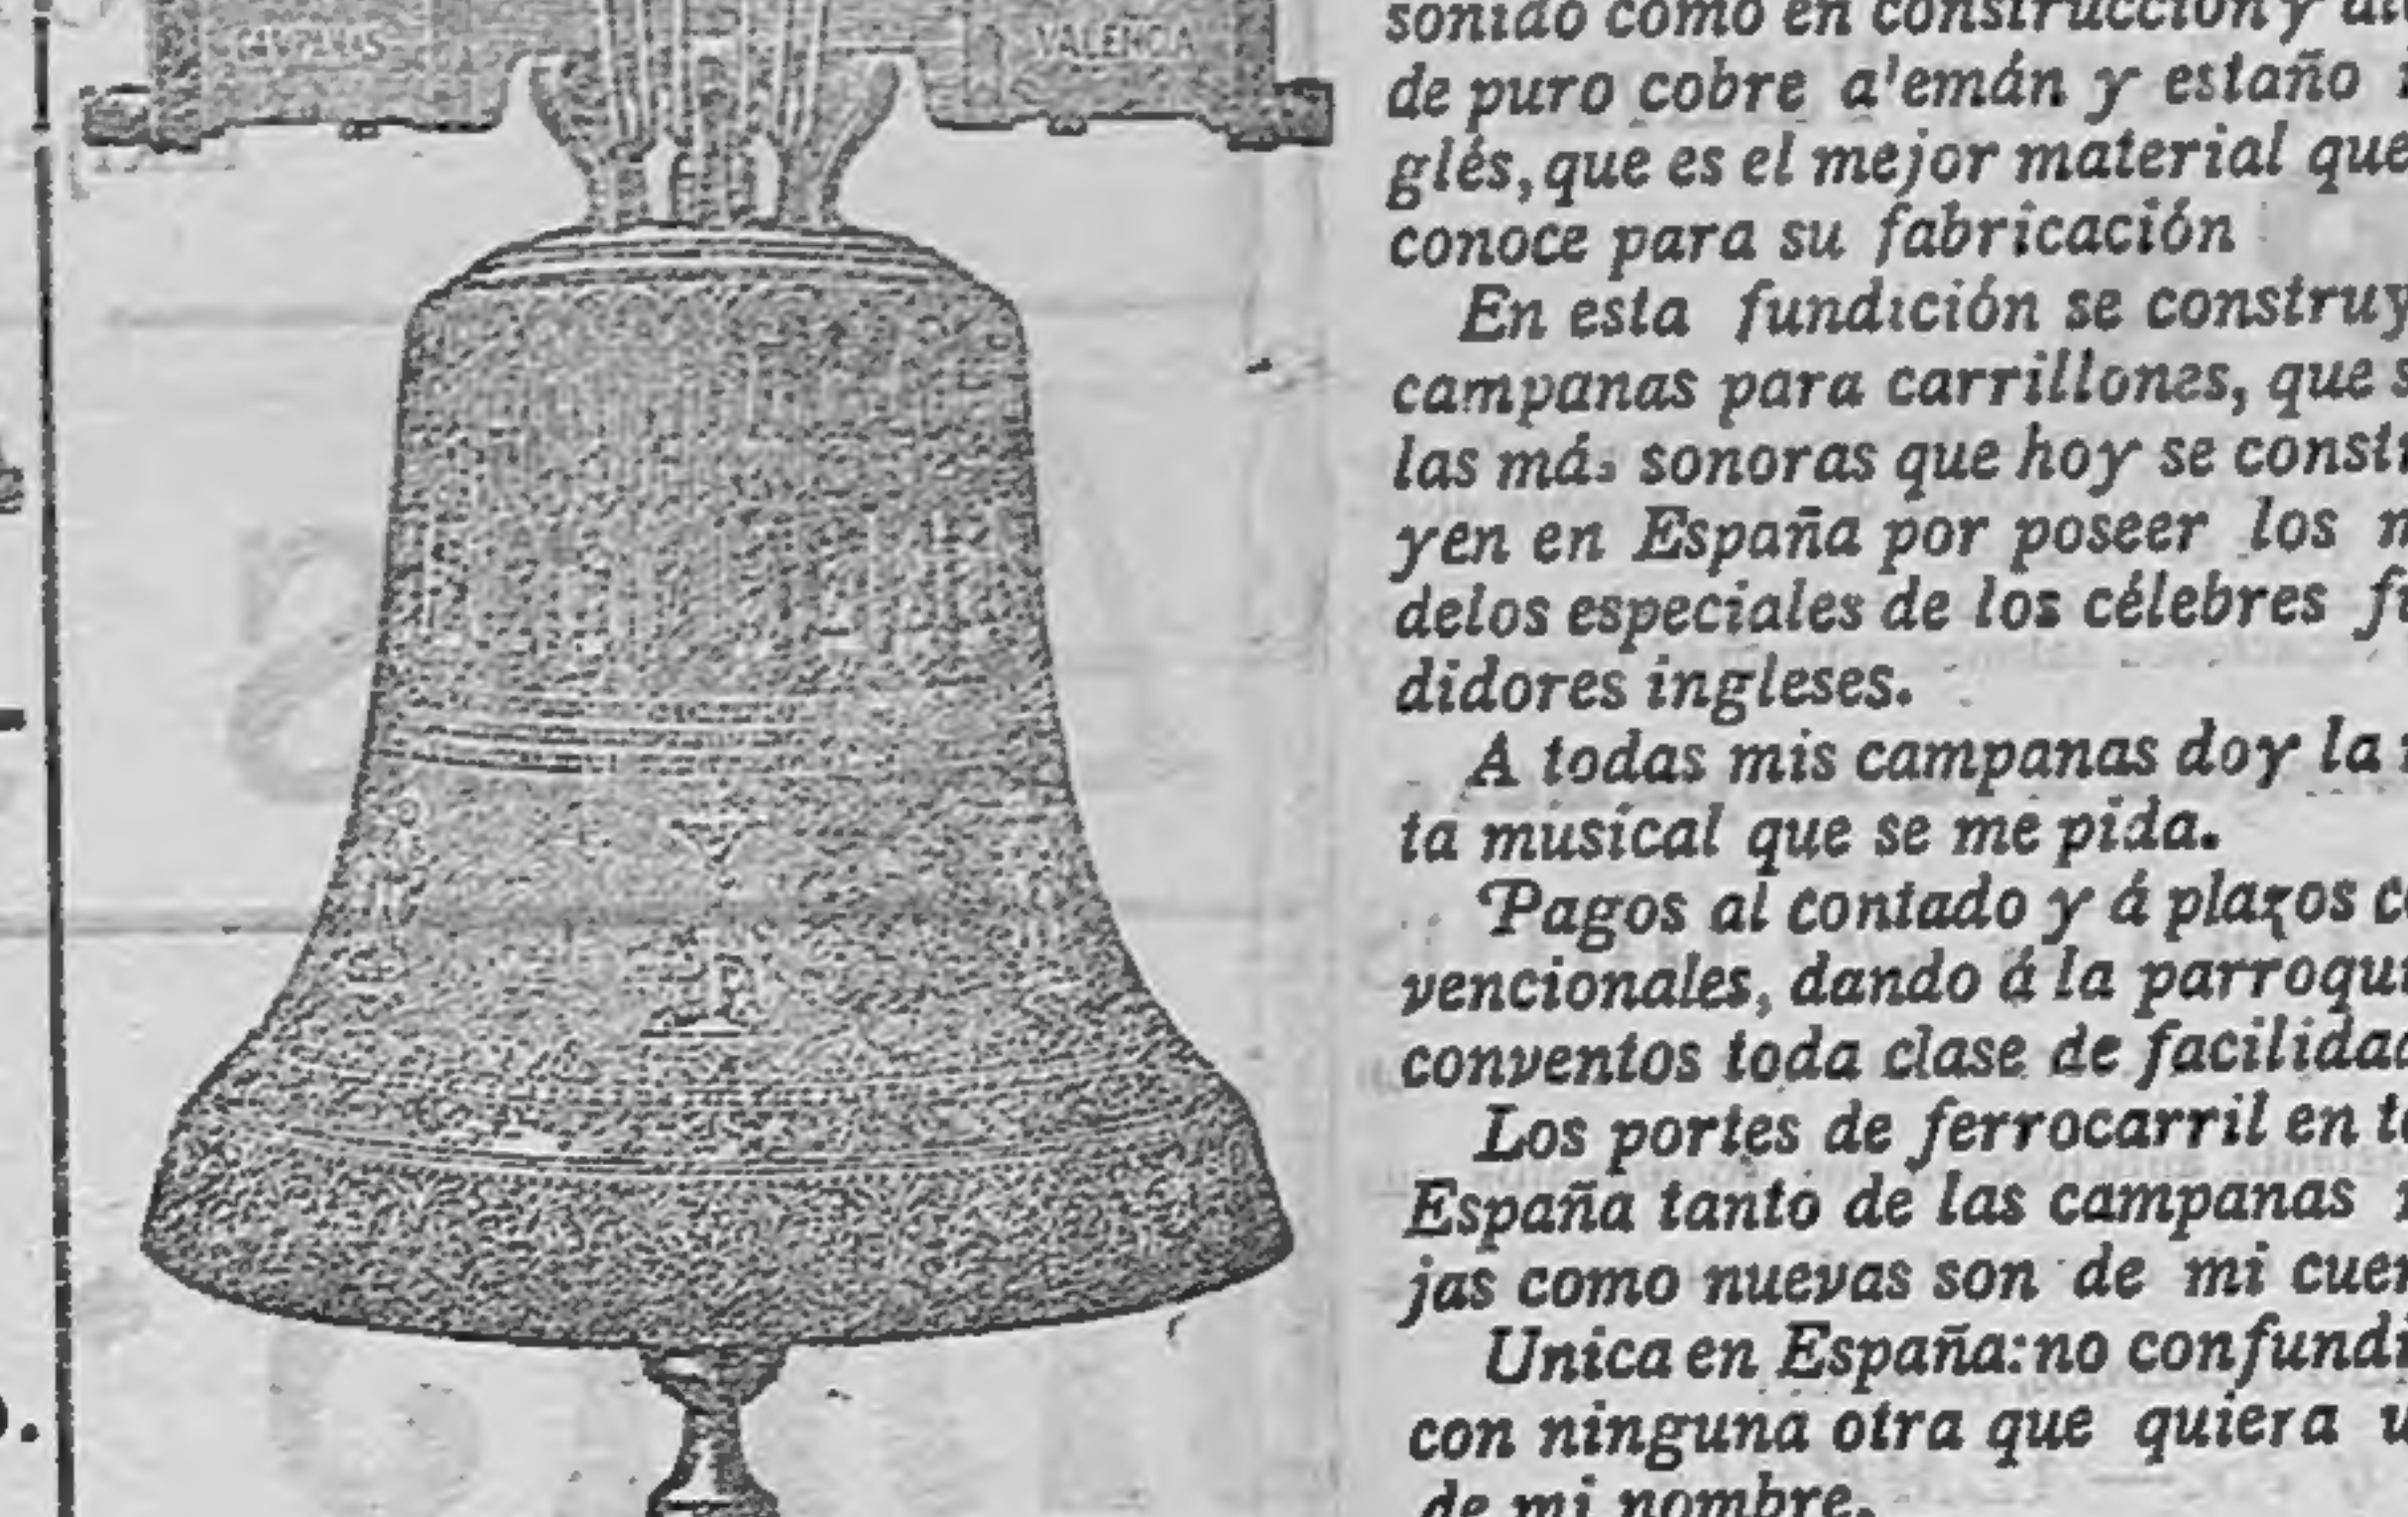 CAMPANAS
VALENCIA
sonido como en construcción y
de puro cobre a'emán y estaño
glés, que es el mejor material que
conoce para su fabricación
En esta fundición se construy
campanas para carrillones, que s
las más sonoras que hoy se constr
yen en España por poseer los m
delos especiales de los célebres f
didores ingleses.
A todas mis campanas doy la
ta musical que se me pida.
Pagos al contado y á plazos c
vencionales, dando á la parroqui
conventos toda clase de facilidad
Los portes de ferrocarril en t
España tanto de las campanas
jas como nuevas son de mi cuen
Unica en España: no confundi
con ninguna otra que quiera u
de mi nombre.